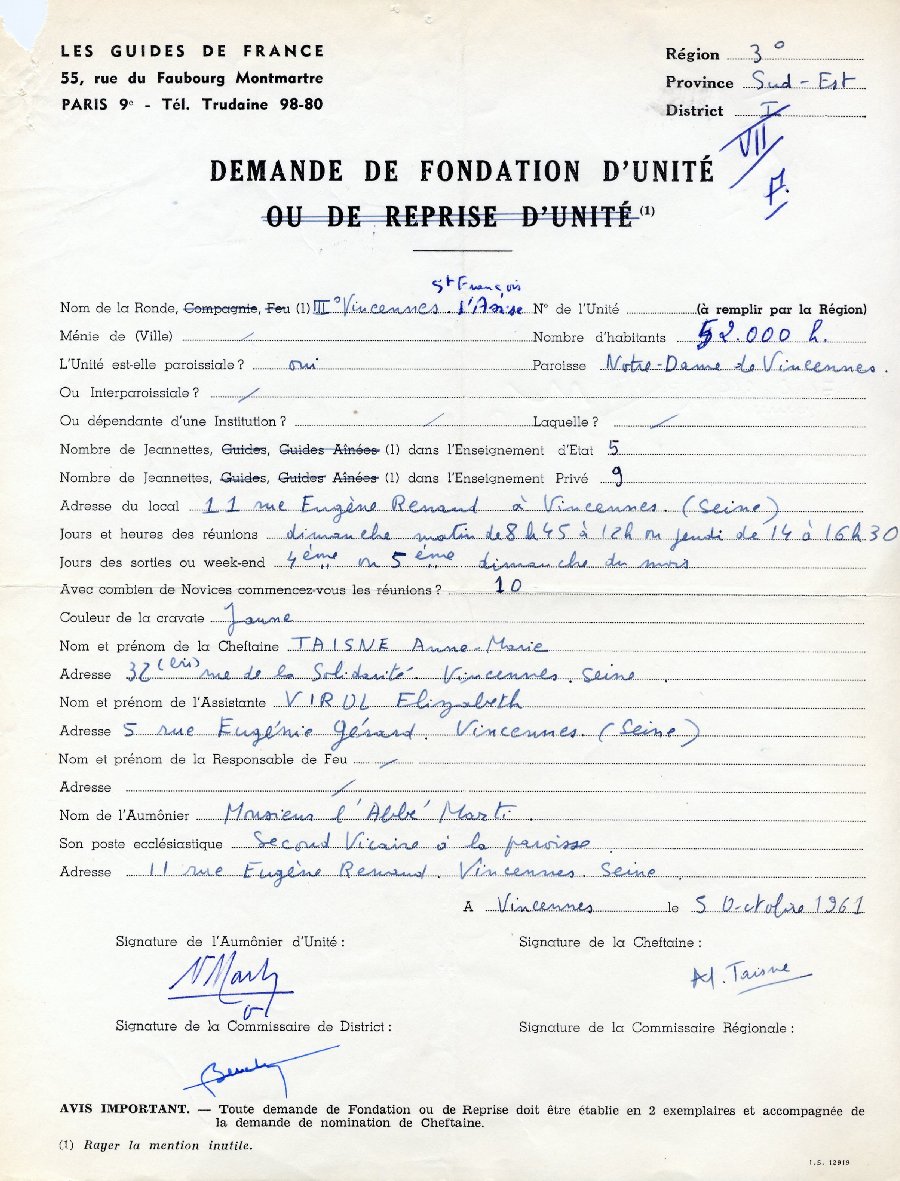 LES GUIDES DE FRANCE
55, rue du Faubourg Montmartre
PARIS 9e - Tél. Trudaine 98-80
Région 3°
Province Sud-Est
District I
VII
DEMANDE DE FONDATION D'UNITÉ
OU DE REPRISE D'UNITÉ (1)
St François
Nom de la Ronde, Compagnie, Feu (1) III° Vincennes d'Assise N° de l'Unité (à remplir par la Région)
Ménie de (Ville) / Nombre d'habitants 52.000 h.
L'Unité est-elle paroissiale ? oui Paroisse Notre-Dame de Vincennes.
Ou Interparoissiale ? /
Ou dépendante d'une Institution ? / Laquelle ? /
Nombre de Jeannettes, Guides, Guides Aînées (1) dans l'Enseignement d'Etat 5
Nombre de Jeannettes, Guides, Guides Aînées (1) dans l'Enseignement Privé 9
Adresse du local 11 rue Eugène Renaud à Vincennes. (Seine)
Jours et heures des réunions dimanche matin de 8h45 à 12h ou jeudi de 14 à 16h30
Jours des sorties ou week-end 4ème ou 5ème dimanche du mois
Avec combien de Novices commencez-vous les réunions ? 10
Couleur de la cravate Jaune
Nom et prénom de la Cheftaine TAISNE Anne-Marie
Adresse 32 (bis) rue de la Solidarité. Vincennes. Seine.
Nom et prénom de l'Assistante VIROL Elizabeth
Adresse 5 rue Eugénie Gérard. Vincennes. (Seine)
Nom et prénom de la Responsable de Feu /
Adresse /
Nom de l'Aumônier Monsieur l'Abbé Marti.
Son poste ecclésiastique Second Vicaire à la paroisse
Adresse 11 rue Eugène Renaud. Vincennes. Seine.
A Vincennes le 5 Octobre 1961
Signature de l'Aumônier d'Unité : Signature de la Cheftaine :
AM. Taisne
Signature de la Commissaire de District : Signature de la Commissaire Régionale :
AVIS IMPORTANT. — Toute demande de Fondation ou de Reprise doit être établie en 2 exemplaires et accompagnée de
la demande de nomination de Cheftaine.
(1) Rayer la mention inutile.
I.S. 12919